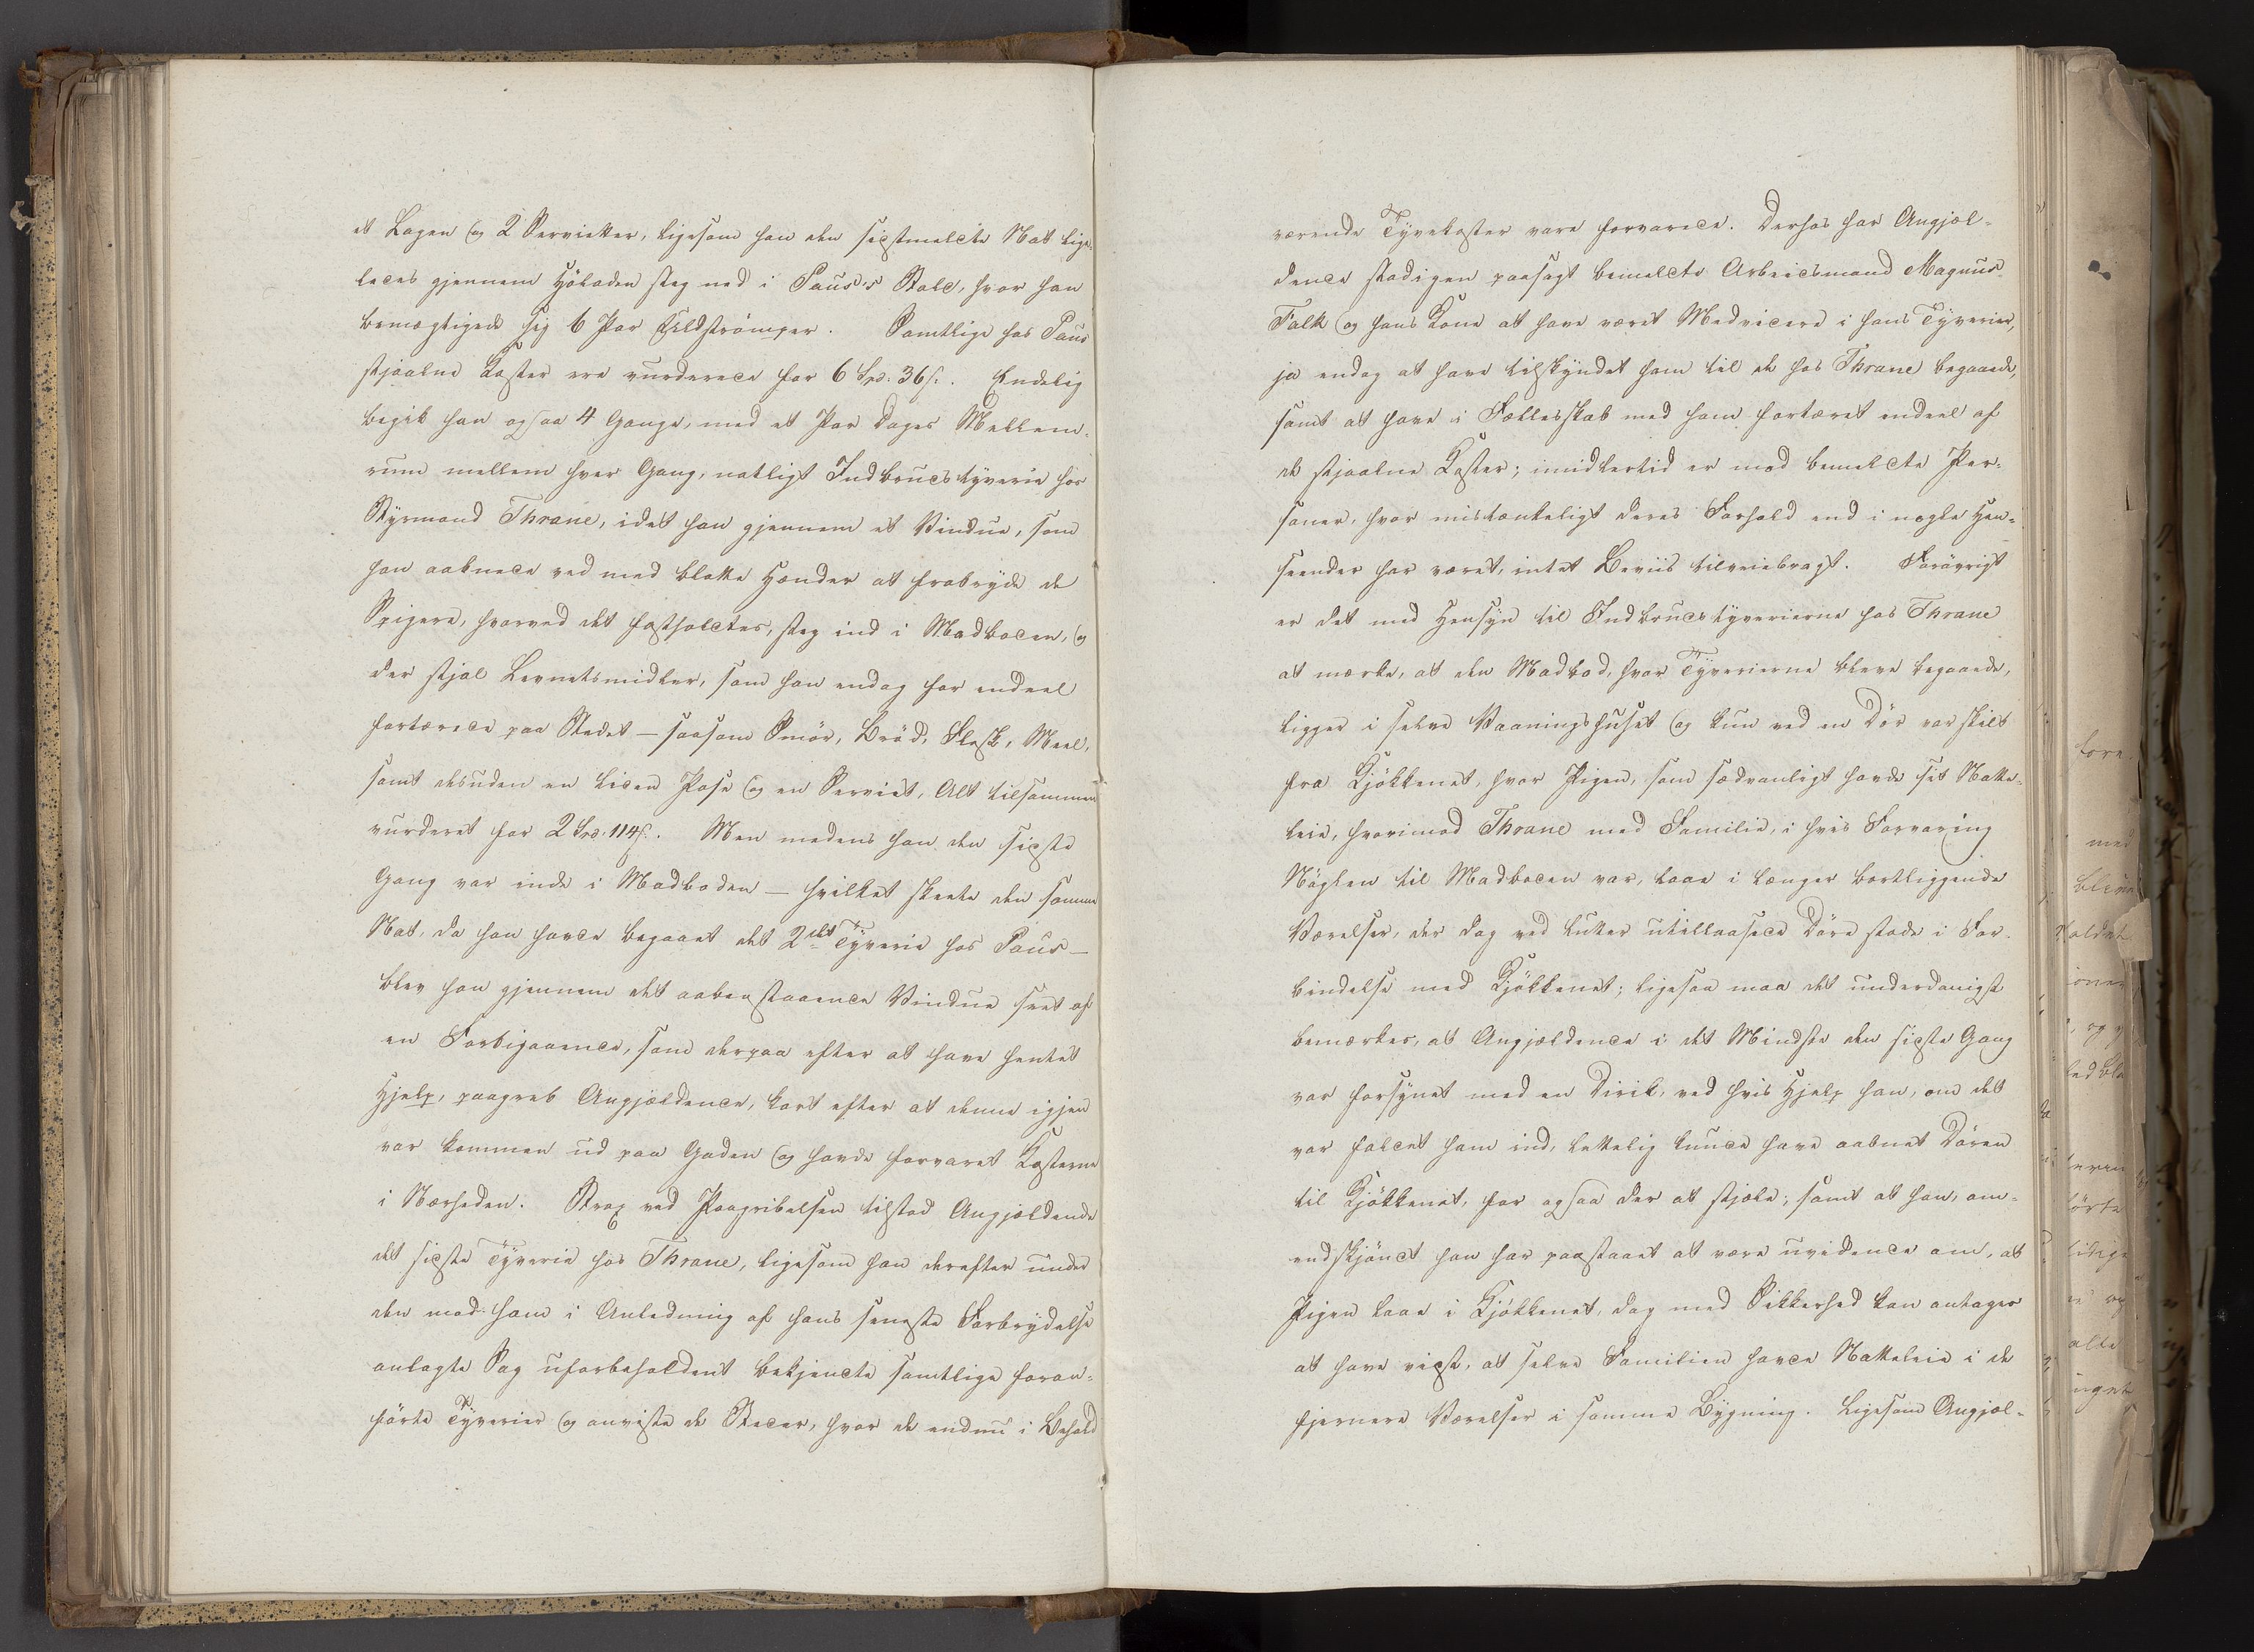 et Lagen og 2 Servietter, ligesom han den sidstmeldte Nat lige-
ledes gjennem Höladen steg ned i Paus's Stald, hvor han
bemægtigede sig 6 Par Uldströmper. Samtlige hos Paus
stjaalne Koster ere vurderede for 6 Spd: 36 s. Endelig
begik han ogsaa 4 Gange, med et Par Dages Mellem-
rum mellem hver Gang, natligt Indbrudstyverie hos
Styrmand Thrane, idet han gjennem et Vindue, som
han aabnede ved med blotte Hænder at frabryde de
Spigere, hvorved det fastholdtes, steg ind i Madboden, og
der stjal Levnetsmidler, som han endog for endeel
fortærede paa Stedet — saasom Smör, Bröd, Flesk, Meel,
samt desuden en liden Pose og en Serviet, Alt tilsammen
vurderet for 2 Spd. 114 s. Men medens han den sidste
Gang var inde i Madboden — hvilket skeete den samme
Nat, da han havde begaaet det 2det Tyverie hos Paus —
blev han gjennem det aabenstaaende Vindue seet af
en Forbigaaende, som derpaa efter at have hentet
Hjelp, paagreb Angjældende, kort efter at denne igjen
var kommen ud paa Gaden og havde forvaret Kosterne
i Nærheden. Strax ved Paagribelsen tilstod Angjældende
det sidste Tyverie hos Thrane, ligesom han derefter under
den mod ham i Anledning af hans seneste Forbrydelse
anlagte Sag uforbeholdent bekjendte samtlige foran-
förte Tyverier og anviste de Steder, hvor de endnu i Behold
værende Tyvekoster vare forvarede. Derhos har Angjæl-
dende stadigen paasagt bemeldte Arbeidsmand Magnus
Falk og hans Kone at have været Medvidere i hans Tyverier,
ja endog at have tilskyndet ham til de hos Thrane begaaede,
samt at have i Fællesskab med ham fortæret endeel af
de stjaalne Koster; imidlertid er mod bemeldte Per-
soner, hvor mistænkeligt deres Forhold end i nogle Hen-
seender har været, intet Beviis tilveiebragt. Forövrigt
er det med Hensyn til Indbrudstyverierne hos Thrane
at mærke, at den Madbod, hvor Tyverierne bleve begaaede,
ligger i selve Vaaningshuset og kun ved en Dör var skilt
fra Kjökkenet, hvor Pigen, som sædvanligt havde sit Natte-
leie, hvorimod Thrane med Familie, i hvis Forvaring
Nöglen til Madboden var, laae i længer bortliggende
Værelser, der dog ved lutter utillaasede Döre stode i For-
bindelse med Kjökkenet; ligesaa maa det underdanigst
bemærkes, at Angjældende i det Mindste den sidste Gang
var forsynet med en Dirik, ved hvis Hjelp han, om det
var faldet ham ind, lettelig kunde have aabnet Dören
til Kjökkenet, for ogsaa der at stjæle; samt at han, om-
endskjöndt han har paastaaet at være uvidende om, at
Pigen laae i Kjökkenet, dog med Sikkerhed kan antages
at have vidst, at selve Familien havde Natteleie i de
fjernere Værelser i samme Bygning. Ligesom Angjæl-